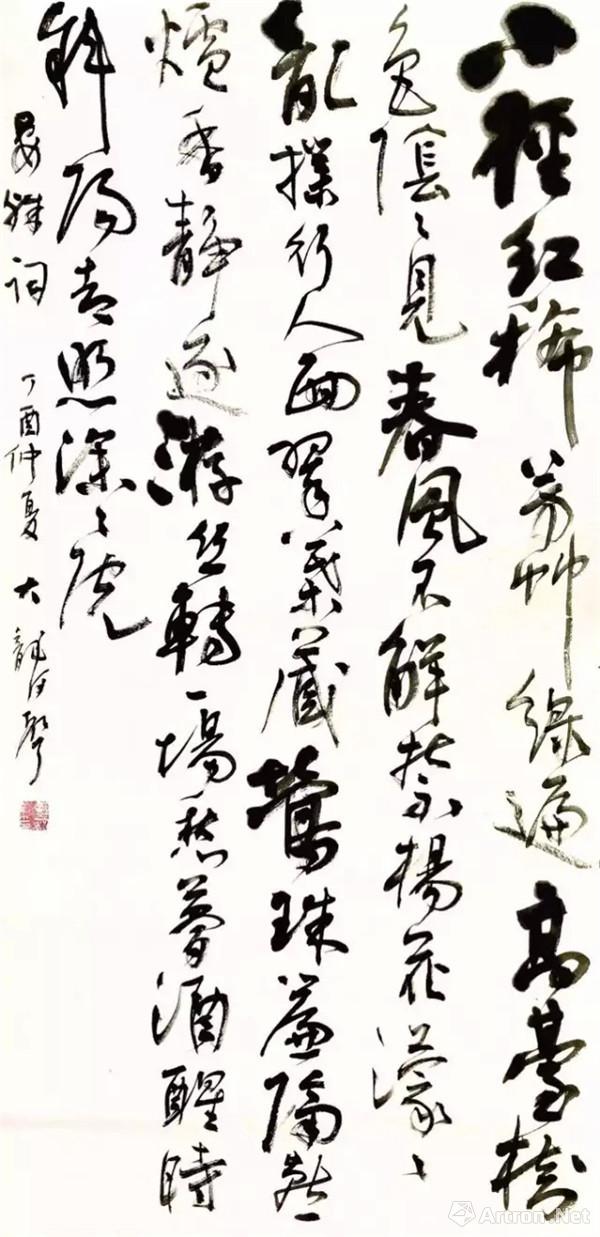 小徑紅稀芳艸綠遍高臺樹
色陰々見春風不解禁楊花濛々
亂撲行人面翠葉藏鶯珠簾隔燕
爐香靜逐游丝轉一場愁夢酒醒時
斜陽却照深々院
晏殊詞 丁酉仲夏 大龍聲
Artron.Net